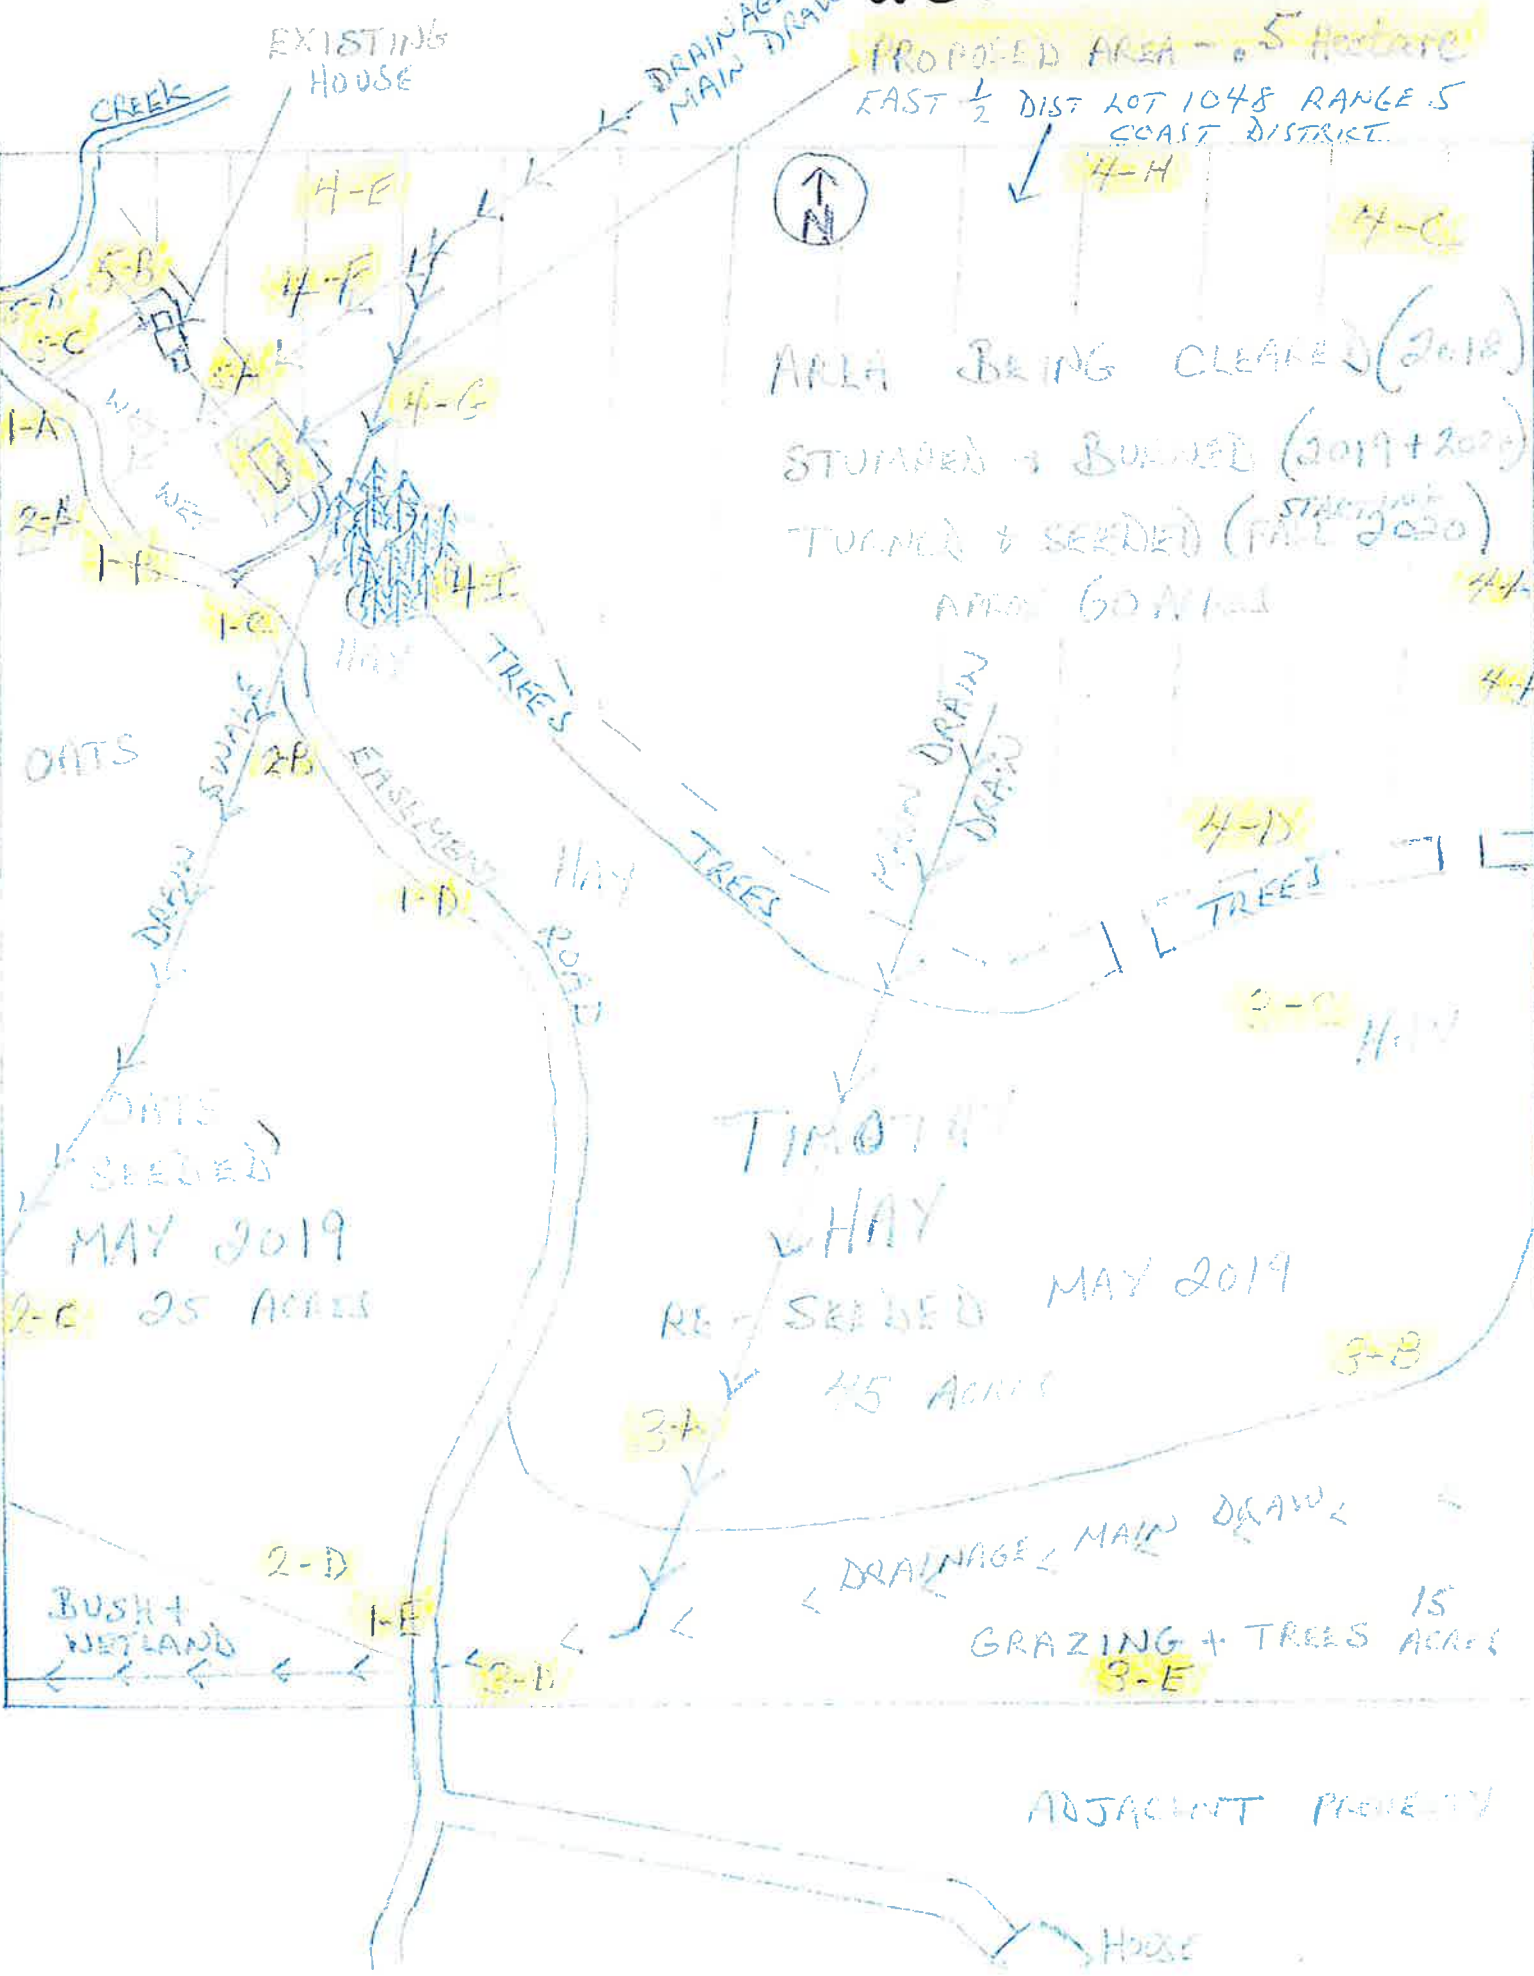 EXISTING
HOUSE
CREEK
MAIN
PROPOSED AREA - .5 Hectare
EAST 1/2 DIST LOT 1048 RANGE 5
COAST DISTRICT
N
4-E
4-H
5-B
4-F
5-C
5-A
4-G
1-A
AREA BEING CLEARED (2018)
STUMPED + BURNED (2019 + 2020)
TURNED & SEEDED (FALL 2020)
60
1-B
1-C
4-I
HAY
TREES
OATS
SWALE
2-B
EASEMENT
ROAD
MAIN DRAIN
HAY
TREES
4-D
TREES
1-D
HAY
OATS
SEEDED
MAY 2019
25 ACRES
TIMOTHY
HAY
RE-SEEDED MAY 2019
45 ACRES
3-B
3-A
DRAINAGE MAIN DRAW
2-D
1-E
BUSH +
WETLAND
GRAZING + TREES 15 ACRES
3-D
3-E
ADJACENT PROPERTY
HOUSE